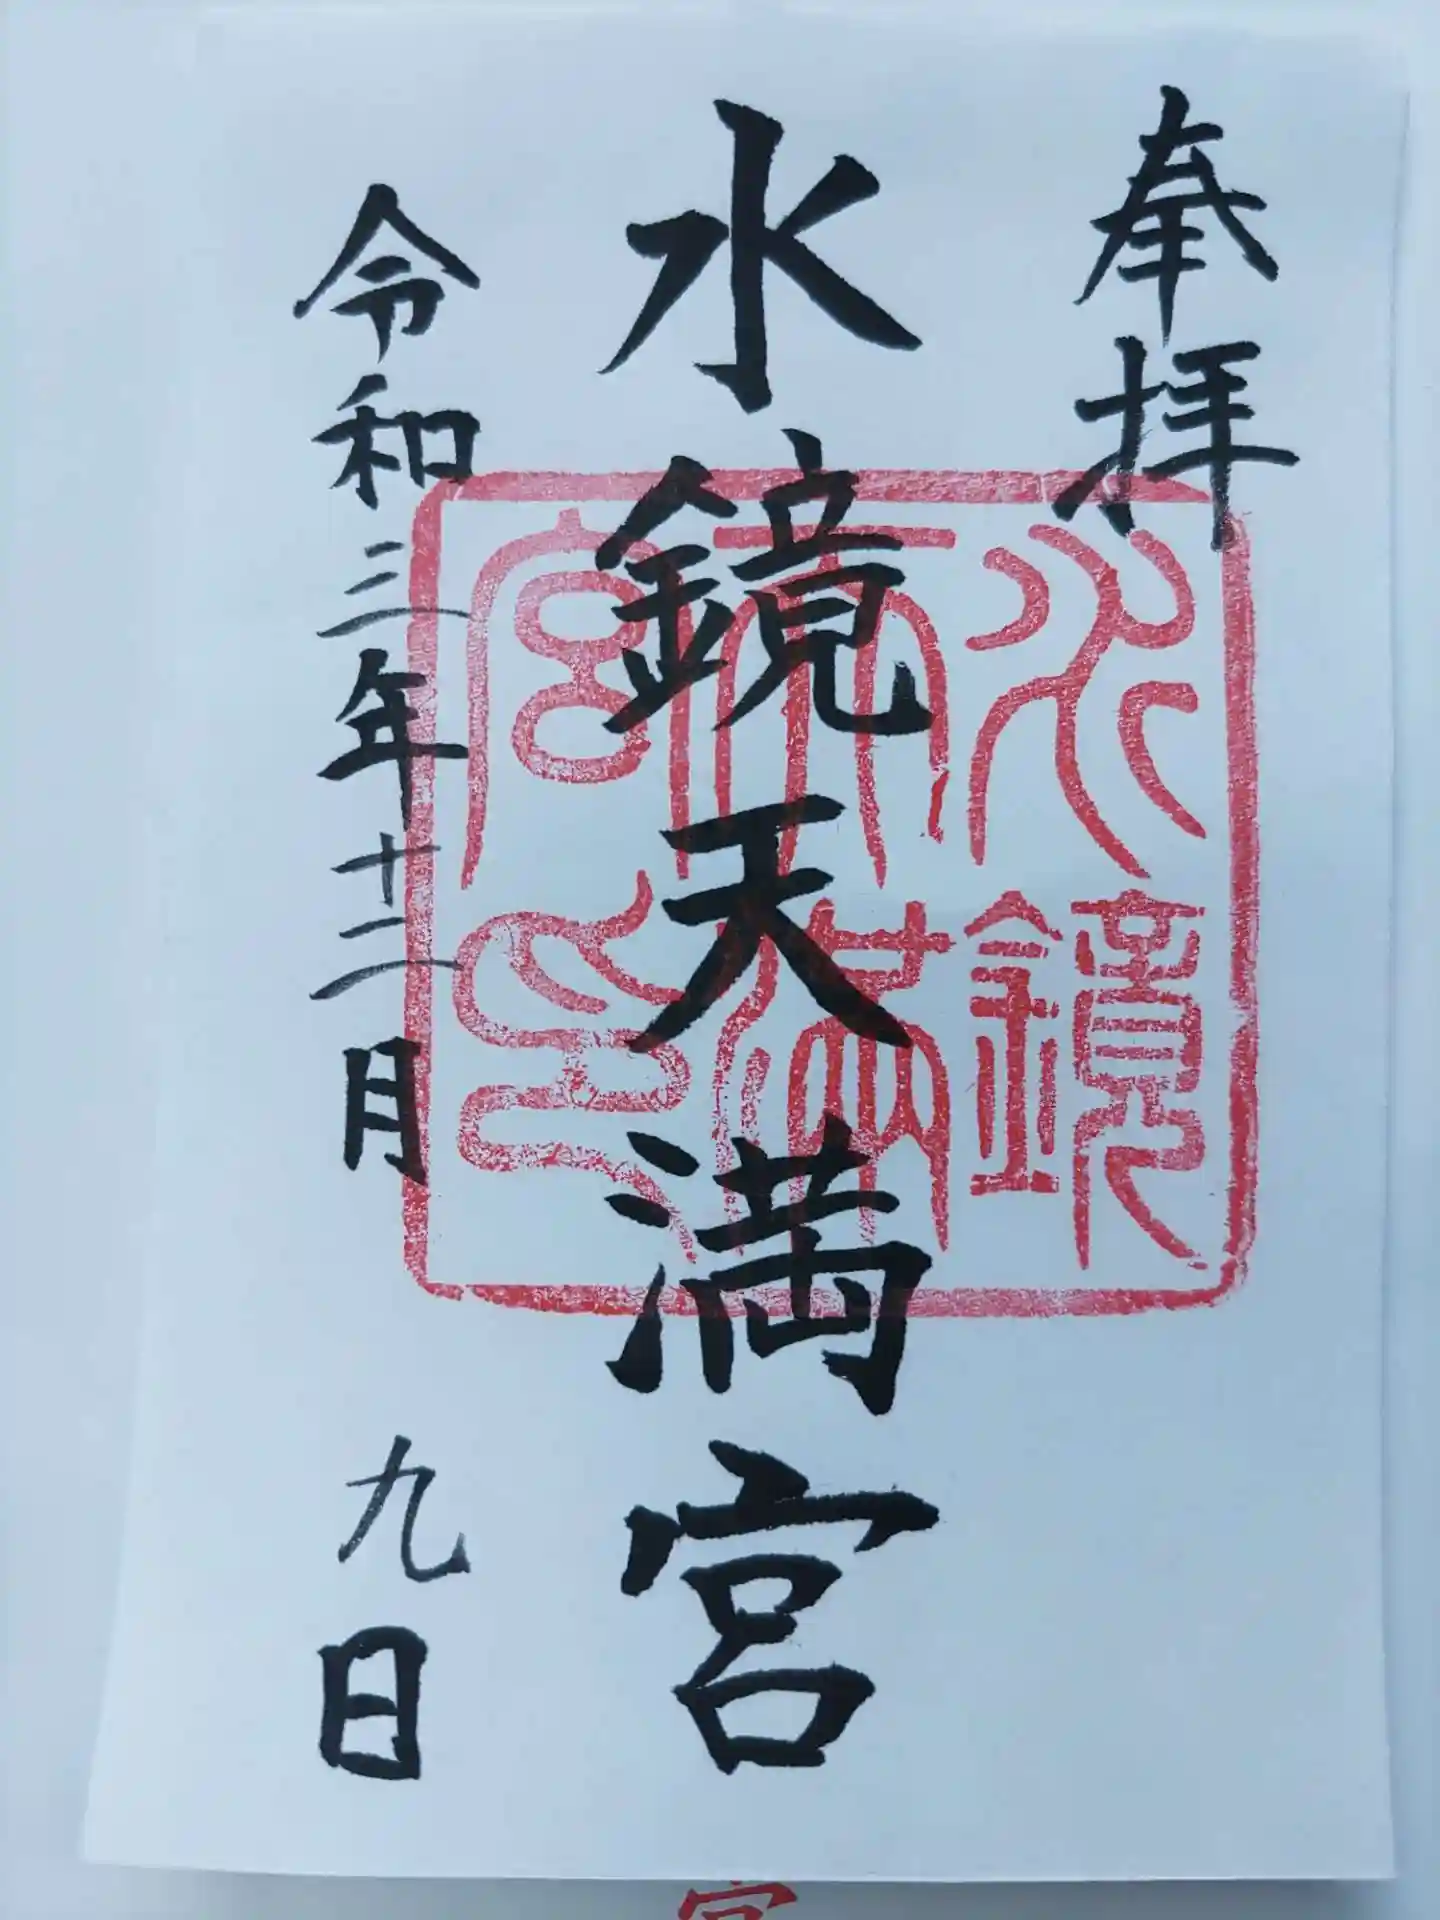 奉拝
水鏡天満宮
令和三年十二月九日
水鏡
天満
宮印
宮